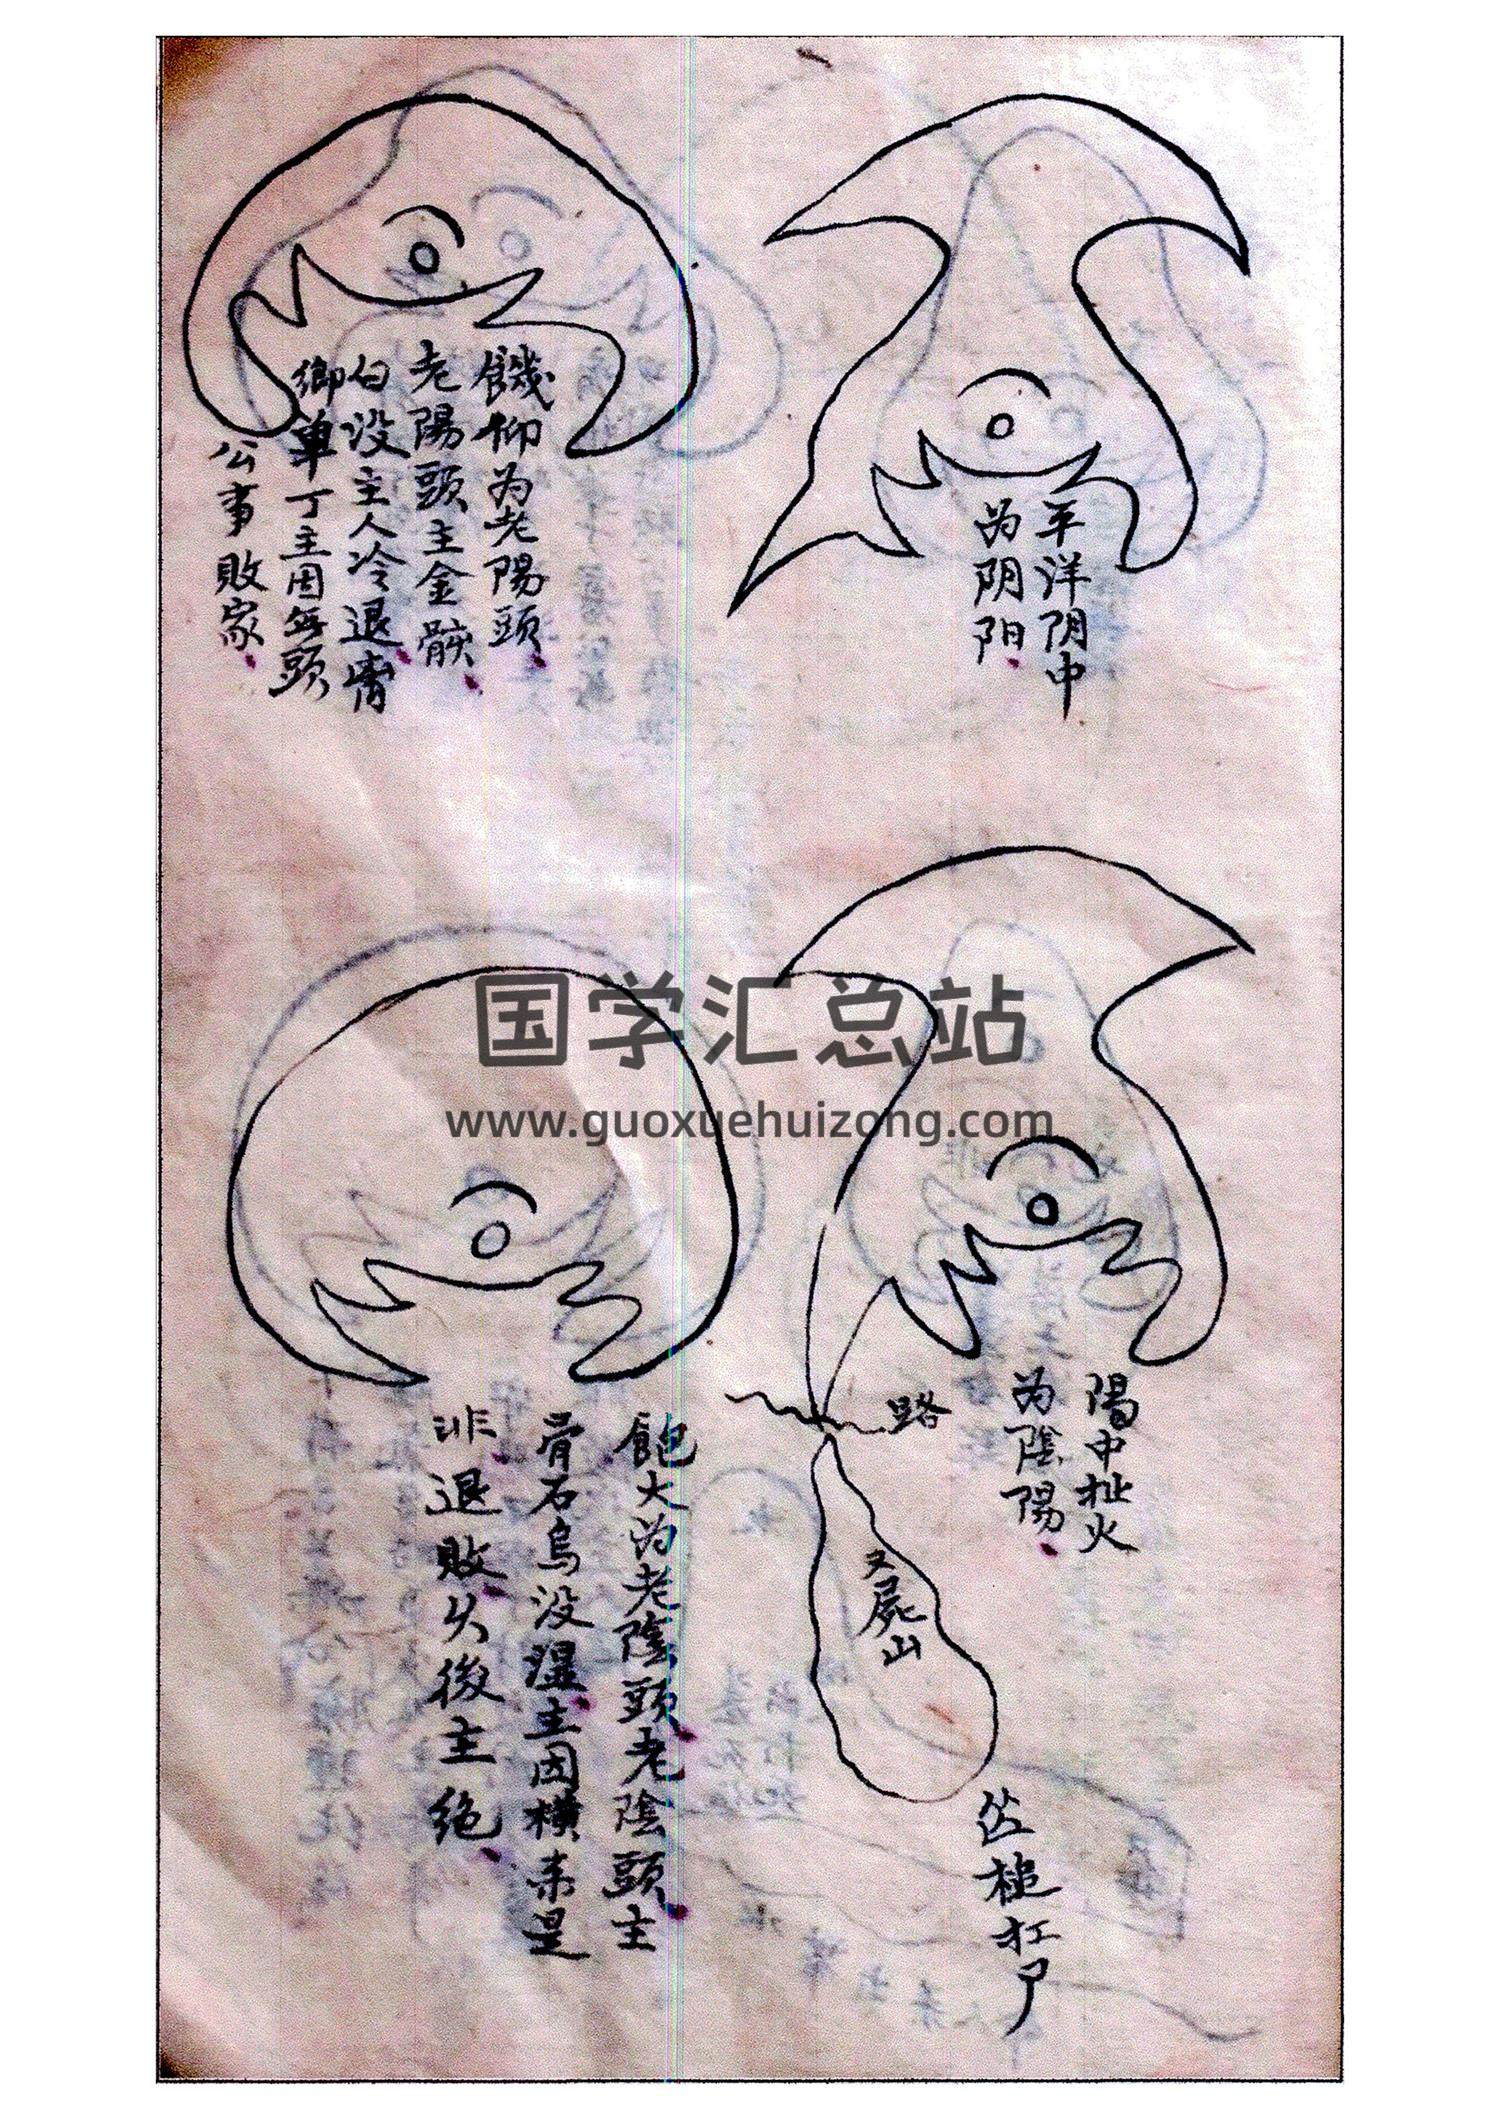 平洋阴中
为阴阳
饑仰为老陽頭
老陽頭主金骸
白没主人冷退
鄉單丁主因無頭
公事敗家
陽中扯火
为陰陽
路
又屍山
扛尸
飽大为老陰頭老陰頭主
骨石烏没濕主因橫来是
非退敗久後主绝
国学汇总站
www.guoxuehuizong.com